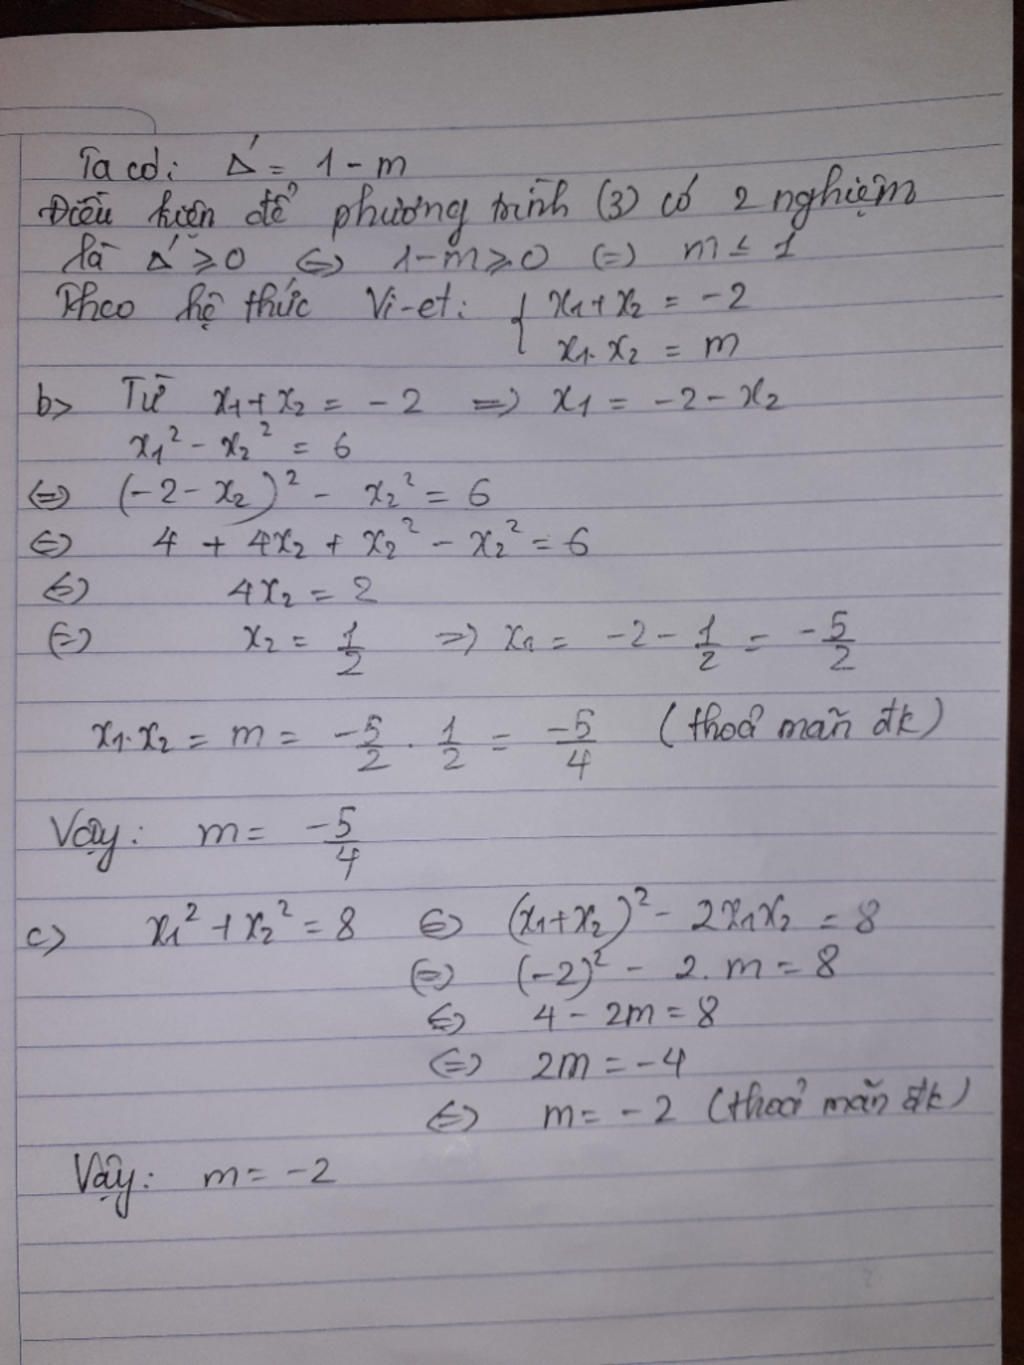 Ta có: Δ' = 1 - m
Điều kiện để phương trình (3) có 2 nghiệm
là Δ' ≥ 0 ⇔ 1 - m ≥ 0 ⇔ m ≤ 1
Theo hệ thức Vi-et: { x₁ + x₂ = -2
x₁. x₂ = m
b> Từ x₁ + x₂ = -2 => x₁ = -2 - x₂
x₁² - x₂² = 6
⇔ (-2 - x₂)² - x₂² = 6
⇔ 4 + 4x₂ + x₂² - x₂² = 6
⇔ 4x₂ = 2
⇔ x₂ = 1/2 => x₁ = -2 - 1/2 = -5/2
x₁. x₂ = m = -5/2 . 1/2 = -5/4 (thoả mãn đk)
Vậy: m = -5/4
c> x₁² + x₂² = 8 ⇔ (x₁ + x₂)² - 2x₁x₂ = 8
⇔ (-2)² - 2. m = 8
⇔ 4 - 2m = 8
⇔ 2m = -4
⇔ m = -2 (thoả mãn đk)
Vậy: m = -2